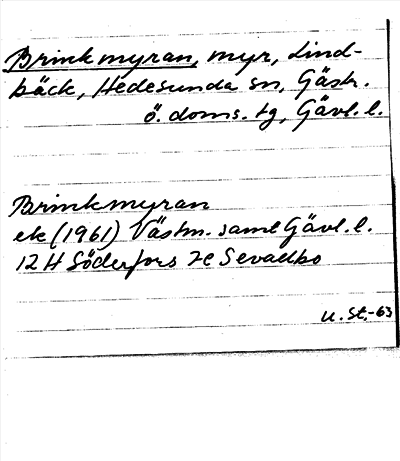 Brinkmyran, myr, Lind-
bäck, Hedesunda sn, Gästr.
ö. doms. tg, Gävl. l.
Brinkmyran
ek (1961) Västm. samt Gävl. l.
12 H Söderfors 7c Sevallbo
U. St.-63